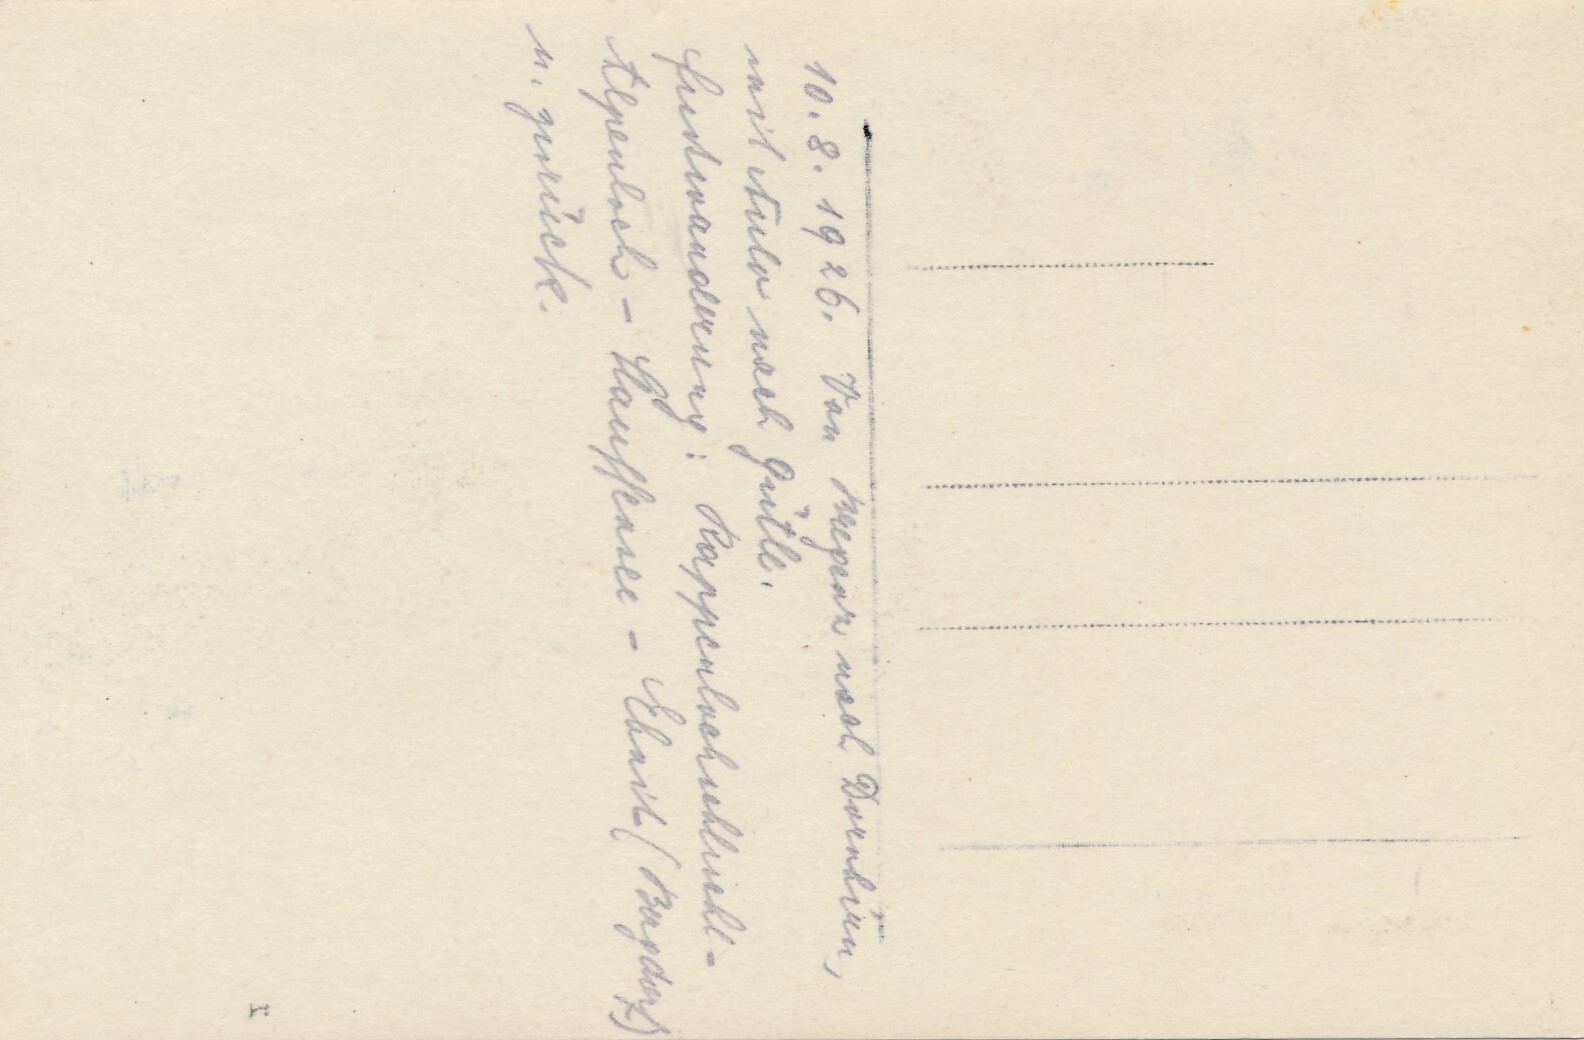 10. 8. 1926. Von Bregenz nach Dornbirn,
mit Auto nach Gütle.
Fußwanderung: Rappenlochschlucht-
Alpenloch - Stauffensee - Ebnit (Bergdorf)
u. zurück.